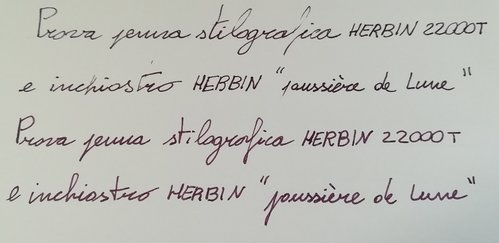 Prova penna stilografica HERBIN 22000T
e inchiostro HERBIN "poussière de Lune"
Prova penna stilografica HERBIN 22000T
e inchiostro HERBIN "poussière de Lune"